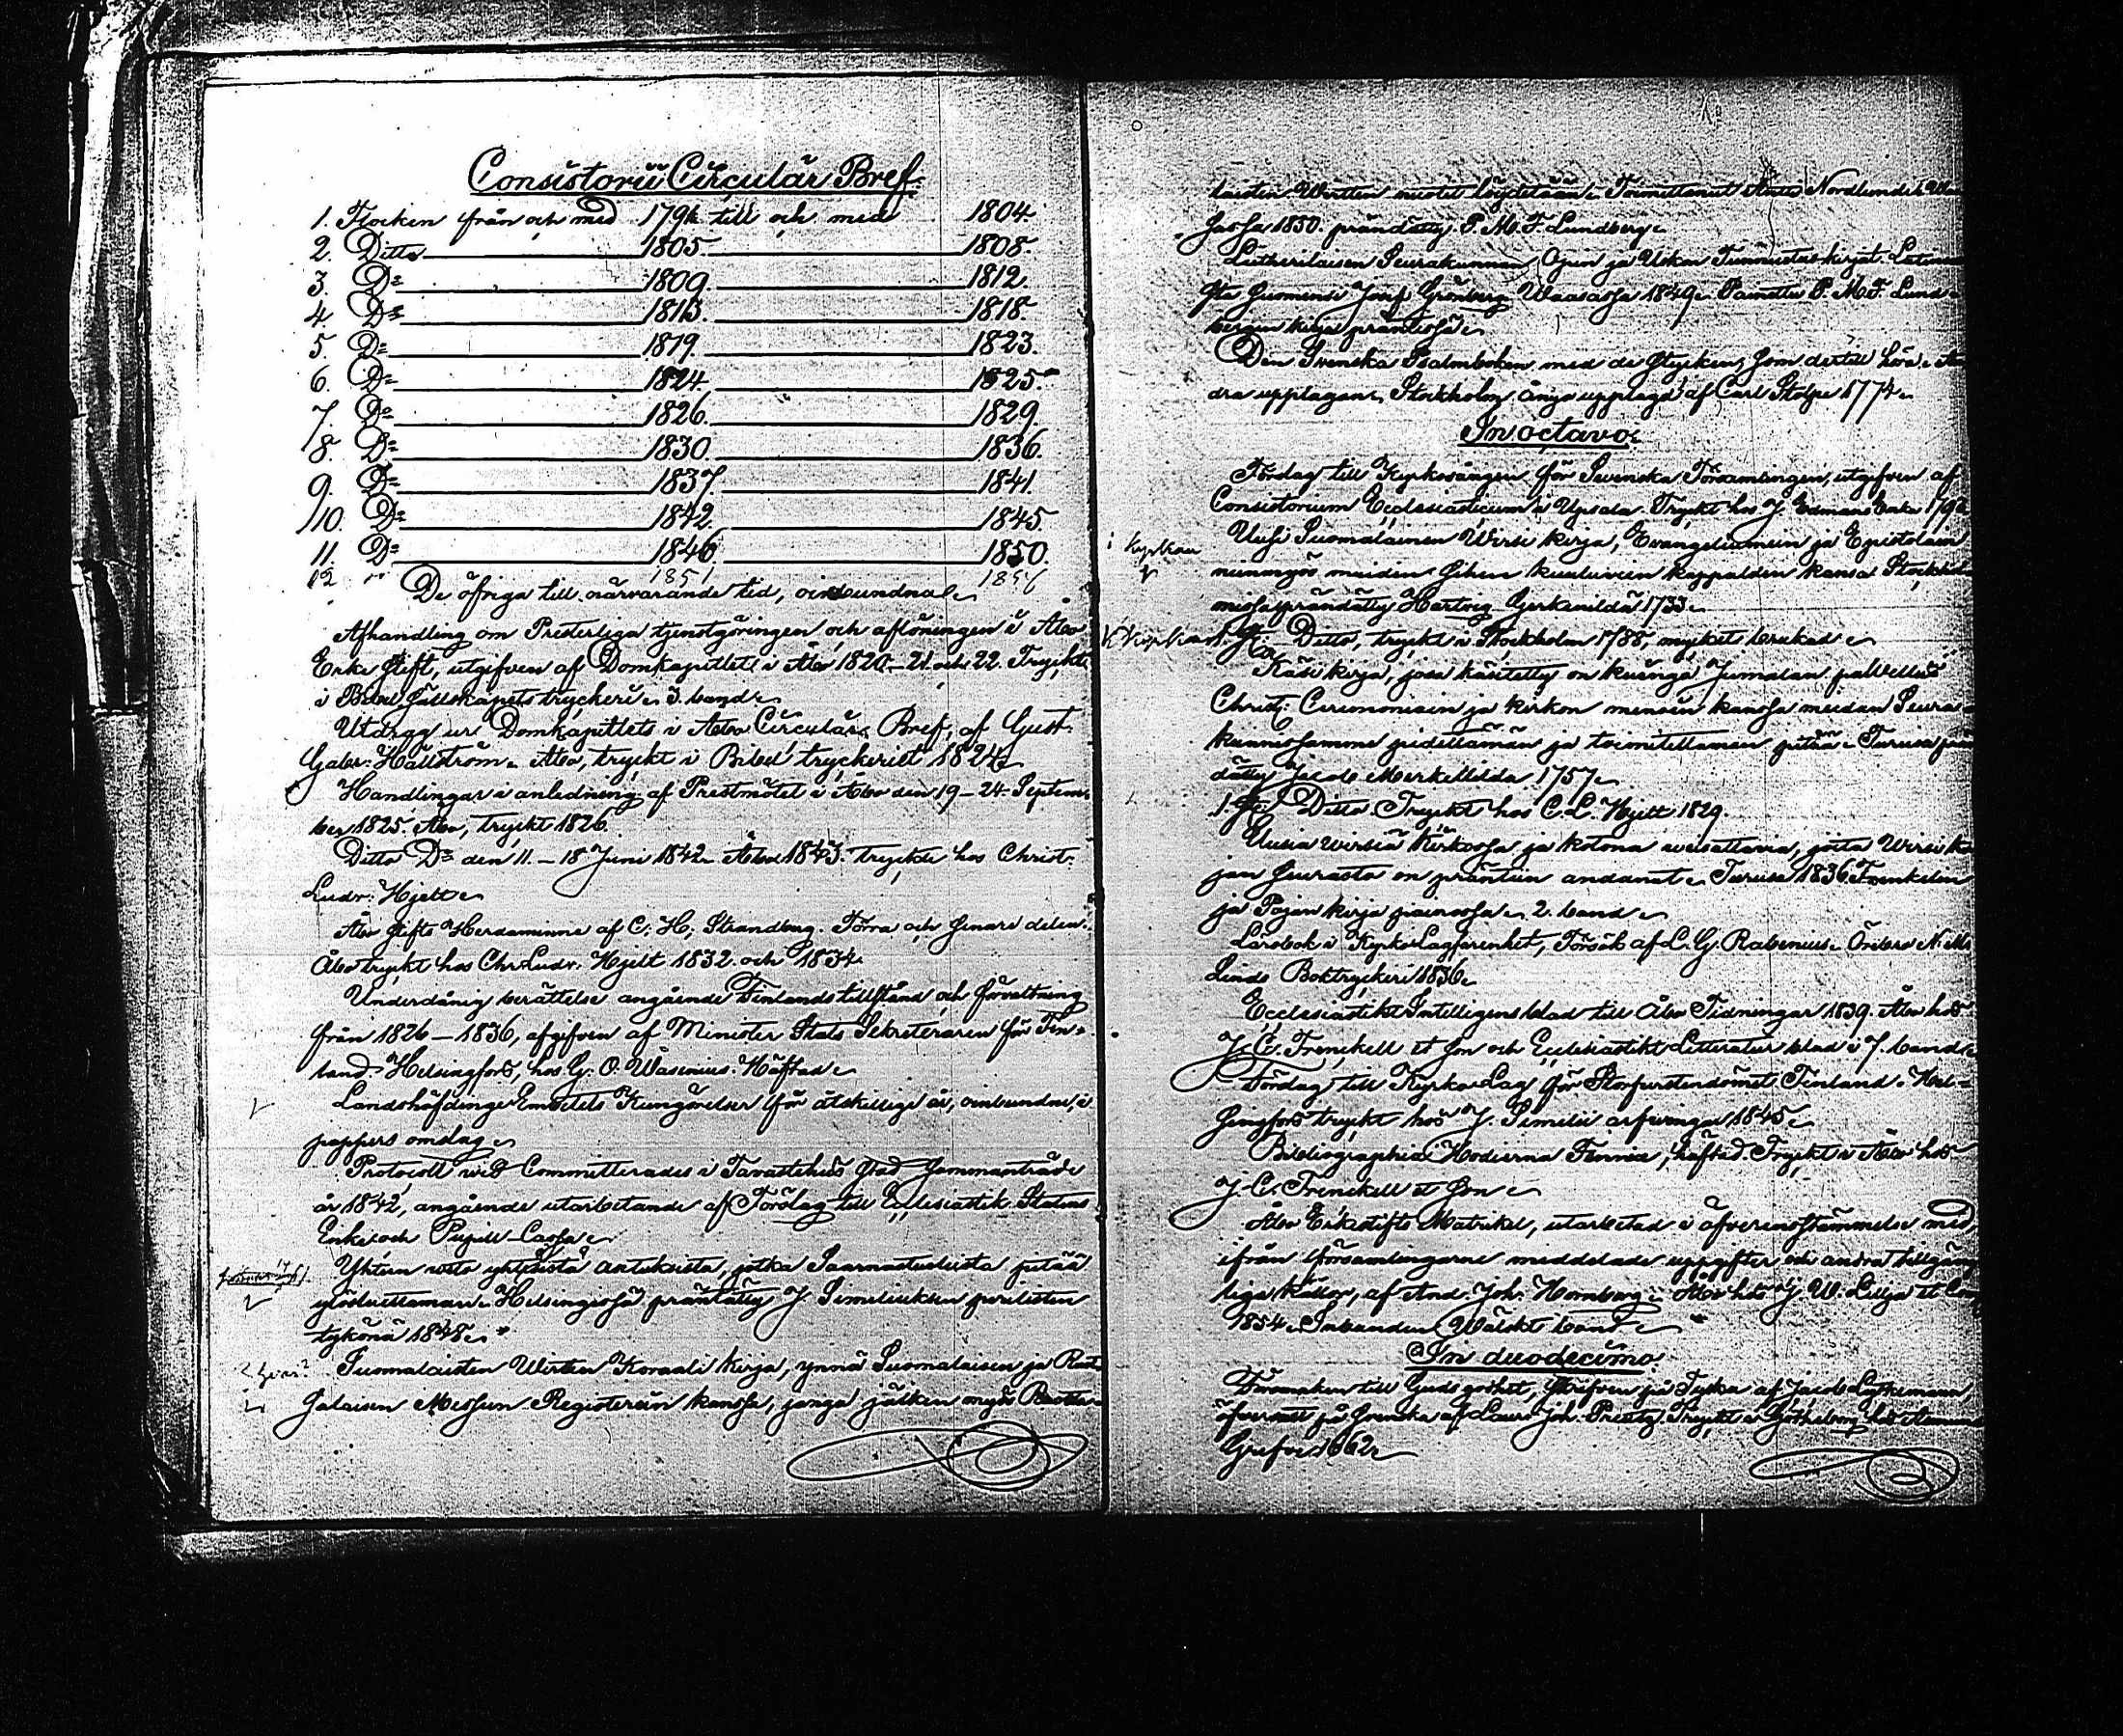 Consistorii Circulär Bref.
1. Tiocken från och med 1794 till och med 1804.
2. Ditto 1805. 1808.
3. Do 1809. 1812.
4. Do 1813. 1818.
5. Do 1819. 1823.
6. Do 1824. 1825.
7. Do 1826. 1829.
8. Do 1830. 1836.
9. Do 1837. 1841.
10. Do 1842. 1845.
11. Do 1846. 1850.
12 " 1851 1856
De öfriga till närvarande tid, oinbundna.
Afhandling om Presterliga tjenstgöringen och aflöningen i Åbo
Erke Stift, utgifven af Domkapitlet i Åbo 1820–21 och 22. Tryckt
i Bibel Sällskapets tryckeri. 3. band.
Utdrag ur Domkapitlets i Åbo Circulär Bref, af Gust.
Gabr. Hällström. Åbo, tryckt i Bibel tryckeriet 1824.
Handlingar i anledning af Prestmötet i Åbo den 19–24 Septem-
ber 1825. Åbo, tryckt 1826.
Ditto Do den 11.–18 Juni 1842. Åbo 1843. tryckt hos Christ.
Ludv. Hjelt.
Åbo Stifts Herdaminne af C. H. Strandberg. Förra och senare delen.
Åbo tryckt hos Chr. Ludv. Hjelt 1832. och 1834.
Underdånig berättelse angående Finlands tillstånd och förvaltning
från 1826–1836, afgifven af Minister Stats Sekreteraren för Fin-
land. Helsingfors, hos G. O. Wasenius. Häftad.
Landshöfdinge Embetets Kungörelser för åtskillige år, oinbundne, i
pappers omslag.
Protocoll vid Committerades i Tavastehus stad sammanträde
år 1842, angående utarbetande af Förslag till Ecclesiastik Statens
Enke och Pupill Cassa.
Yhteen veto yhteisistä asetuksista, jotka Saarnastuolista pitää
ylösluettaman. Helsingissä präntätty J. Simeliuksen perilisten
tykönä 1848.
Suomalaisten Wirtten Koraali kirja, ynnä Suomalaisen ja Ruot-
salaisen Messun Registerein kanssa, jonga jälken myös Ruotsa-
laisten Wirtten nuotit löydetään. Toimittanut Anttì Nordlund. Waa-
sassa 1850. prändätty P. M. F. Lundberg.
Lutherilaisen Seurakunnan Opin ja Uskon Tunnustuskirjat. Latinas
sta Suomensi Josef Grönberg Waasassa 1849. Painettu P. M. F. Lund-
bergin kirja präntissä.
Den Svenska Psalmboken med de stycken, som dertill höra. An-
dra upplagan. Stockholm ånyo upplagd af Carl Stolpe 1774.
In octavo.
Förslag till Kyrkosången för Svenska Församlingen, utgifven af
Consistorium Ecclesiasticum i Upsala. Tryckt hos J. Edmans Enka
i kyrkan
Uusi Suomalainen Wirsi kirja, Evangeliumein ja Epistolain
niinmyös muiden siihen kuuluvien kappalden kansa Stockhol-
missa prändätty Hartvig Gerkenildä 1733.
Ditto, tryckt i Stockholm 1788, mycket brukad.
Käsi kirja, josa käsitetty on kuinga Jumalan palvellus
Christ. Ceremoniain ja kirkon menoin kanssa meidän Seura-
kunnissamme pidettämän ja toimitettaman pitää. Turusa prän-
dätty Jacob Merkellildä 1757.
Ditto Tryckt hos C. L. Hjelt 1829.
Uusia wirsiä Kirkossa ja kotona weisattavia, joita Wirsi kir-
jan seurasta on präntiin andanut. Turusa 1836. Frenkelin
ja Pojan kirja painossa. 2. band.
Lärobok i Kyrko Lagfarenhet, Försök af L. G. Rabenius. Örebro N. M.
Linds Boktryckeri 1836.
Ecclesiastikt Intelligensblad till Åbo Tidningar 1839. Åbo hos
J. C. Frenckell et Son och Ecclesiastikt Litteratur blad i 7. band.
Förslag till Kyrko Lag för Storfurstendömet Finland. Hel-
singfors tryckt hos J. Simelii arfvingar 1845.
Bibliographia Hodierna Fennia, häftad. Tryckt i Åbo hos
J. C. Frenckell et Son.
Åbo Erkestifts Matrikel, utarbetad i öfverensstämmelse med,
ifrån församlingarne meddelade uppgifter och andra tillgäng-
liga källor, af And. Joh. Hornborg. Åbo hos J. W. Lillja et Comp
1854. Inbunden Wälskt band.
In duodecimo.
Försmaken till Guds godhet, skrifven på Tyska af Jacob Lütkemann,
öfversatt på svenska af Laurs Joh. Tryckt i Götheborg hos
Grefve 1662.